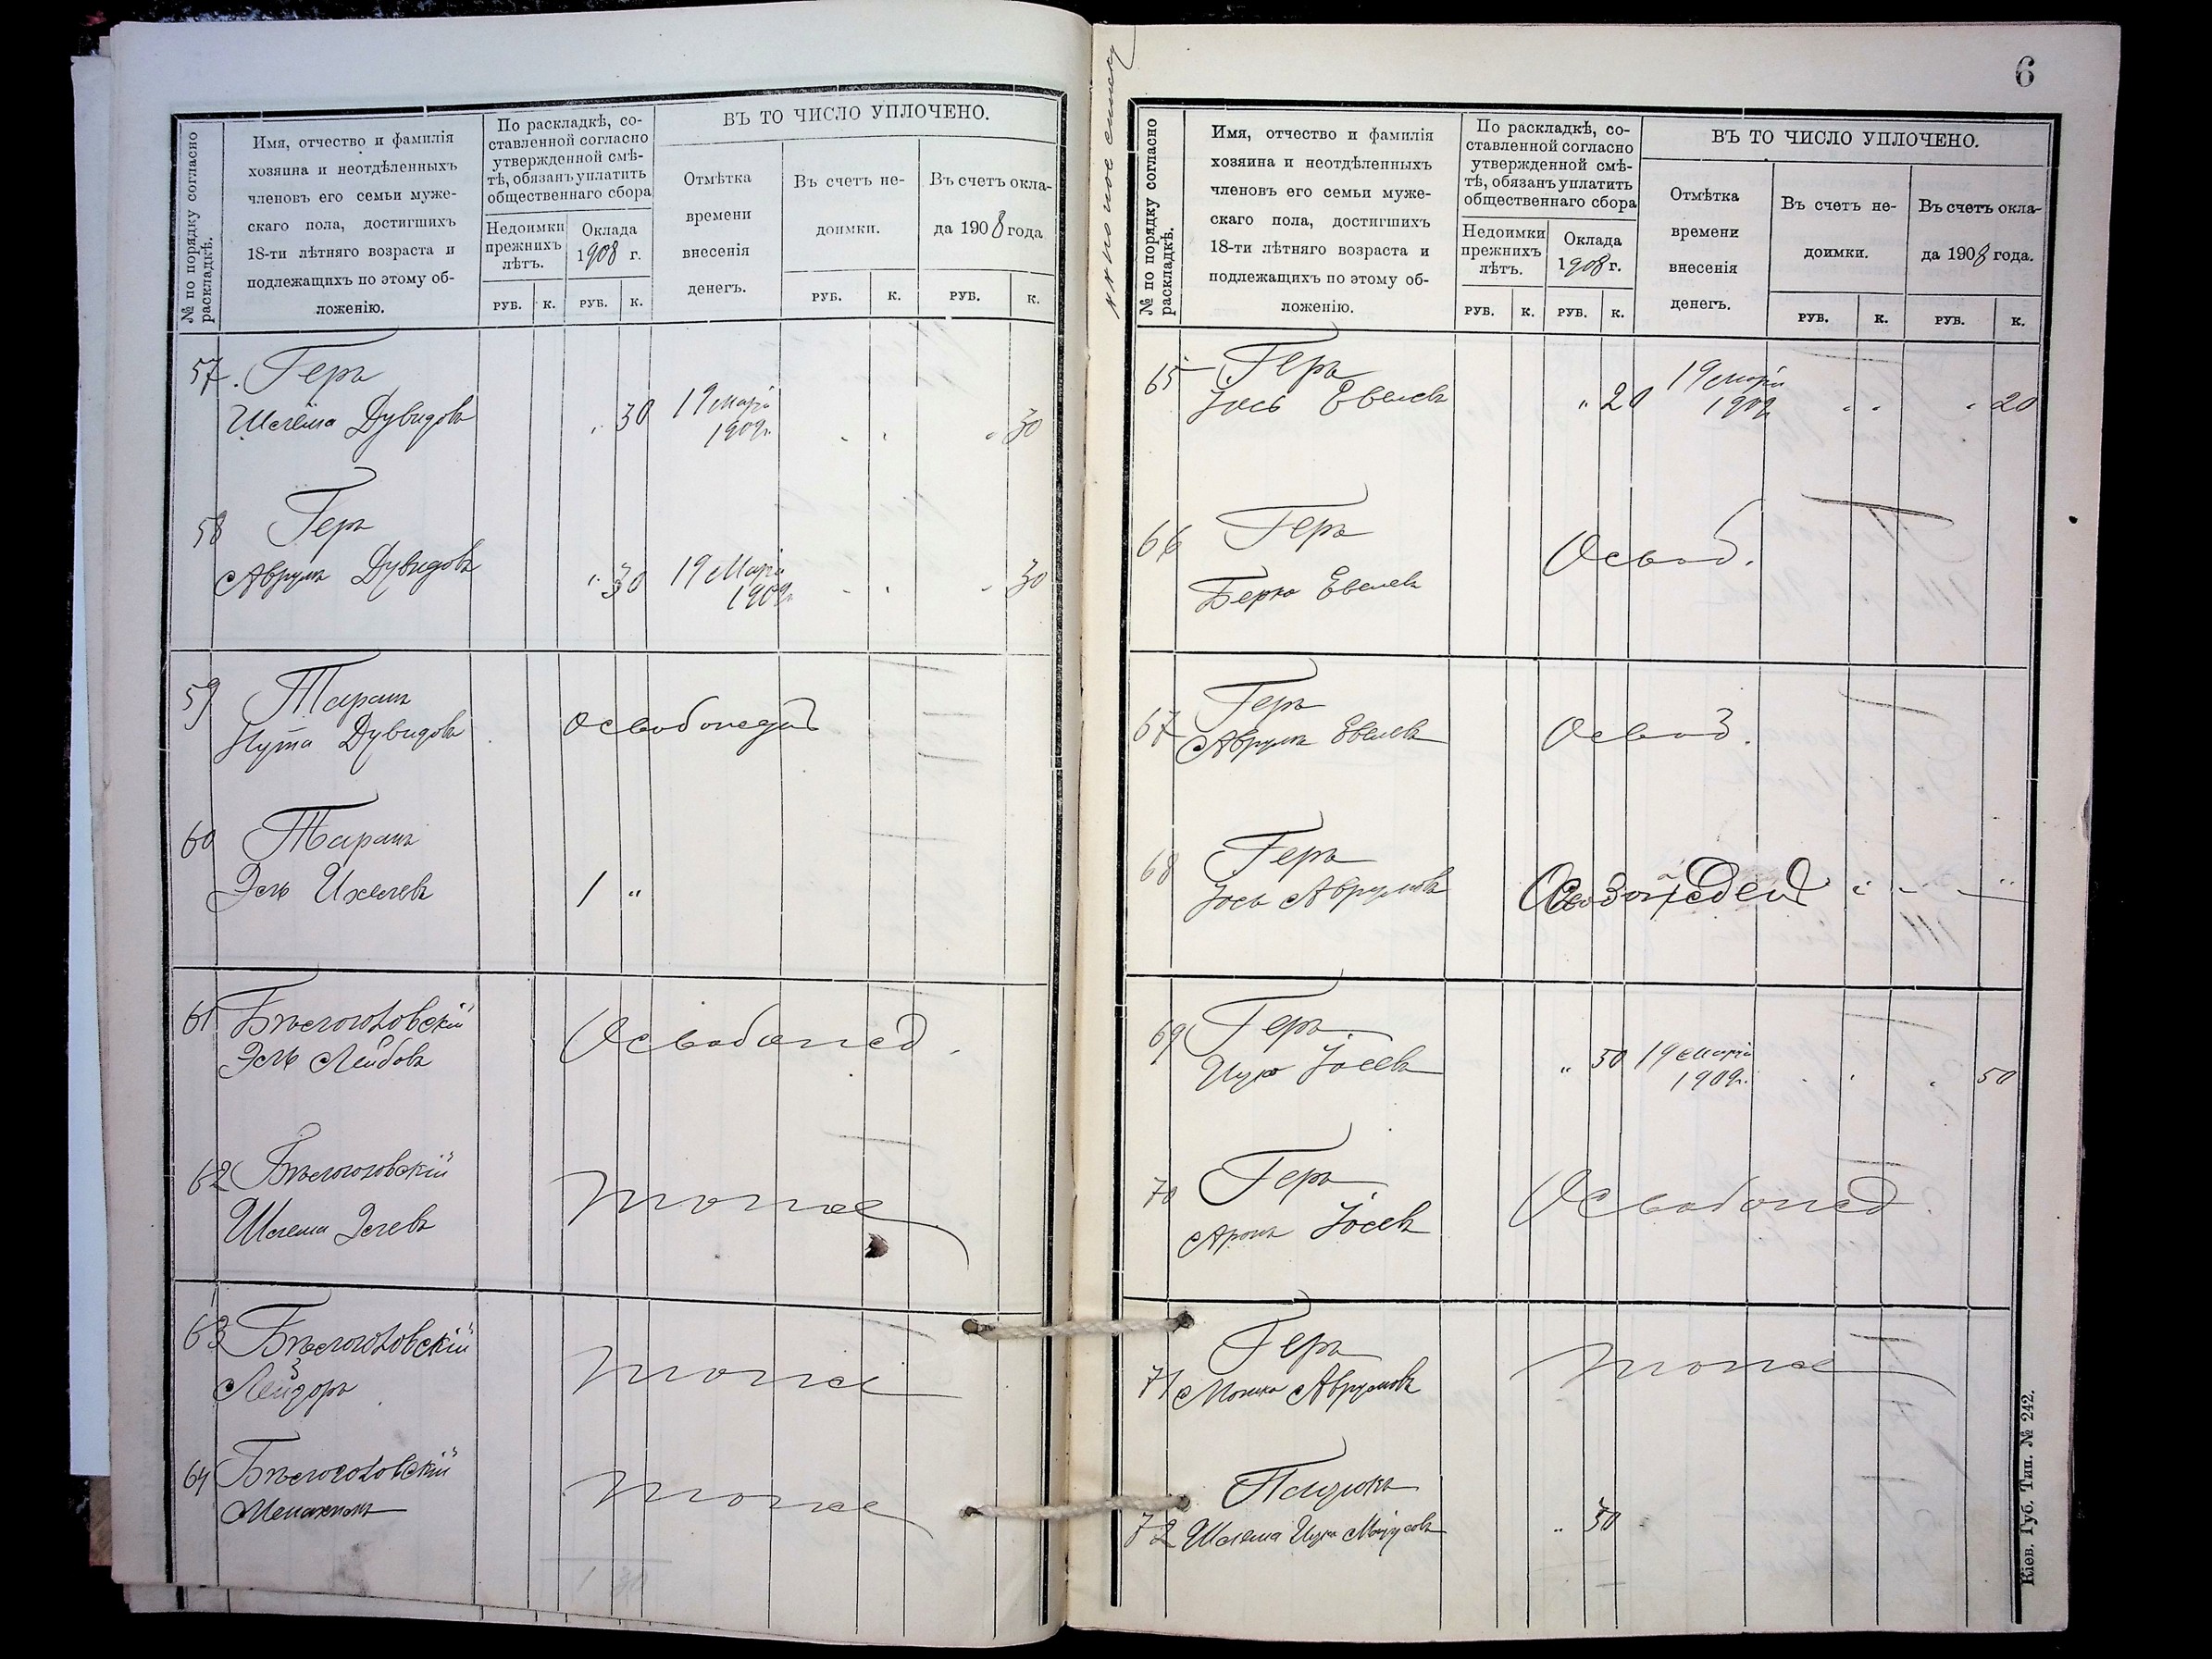 № по порядку согласно
раскладкѣ.
Имя, отчество и фамилія
хозяина и неотдѣленныхъ
членовъ его семьи муже-
скаго пола, достигшихъ
18-ти лѣтняго возраста и
подлежащихъ по этому об-
ложенію.
По раскладкѣ, со-
ставленной согласно
утвержденной смѣ-
тѣ, обязанъ уплатить
общественнаго сбора
Недоимки
прежнихъ
лѣтъ.
Оклада
1908 г.
РУБ. К. РУБ. К.
ВЪ ТО ЧИСЛО УПЛОЧЕНО.
Отмѣтка
времени
внесенія
денегъ.
Въ счетъ не-
доимки.
Въ счетъ окла-
да 1908 года
РУБ. К. РУБ. К.
57. Геръ
Шлёма Дувидовъ " 30 19 Мар
1909г. " 30
58 Геръ
Аврумъ Дувидовъ " 30 19 Мар
1909г. " 30
59 Таранъ
Нута Дувидовъ Освобожд
60 Таранъ
Эль Ихелевъ 1 "
61 Бѣлоголовскій
Эль Лейбовъ Освобожд.
62 Бѣлоголовскій
Шлема Элевъ тоже
63 Бѣлоголовскій
тоже
64 Бѣлоголовскій
тоже
1 30
6
№ по порядку согласно
раскладкѣ.
Имя, отчество и фамилія
хозяина и неотдѣленныхъ
членовъ его семьи муже-
скаго пола, достигшихъ
18-ти лѣтняго возраста и
подлежащихъ по этому об-
ложенію.
По раскладкѣ, со-
ставленной согласно
утвержденной смѣ-
тѣ, обязанъ уплатить
общественнаго сбора
Недоимки
прежнихъ
лѣтъ.
Оклада
1908 г.
РУБ. К. РУБ. К.
ВЪ ТО ЧИСЛО УПЛОЧЕНО.
Отмѣтка
времени
внесенія
денегъ.
Въ счетъ не-
доимки.
Въ счетъ окла-
да 1908 года.
РУБ. К. РУБ. К.
65 Геръ
Іось Евелевъ " 20 19 Мар
1909г. " 20
66 Геръ
Берко Евелевъ Освоб.
67 Геръ
Аврумъ Евелевъ Освоб.
68 Геръ
Іось Аврумовъ
69 Геръ
Ицко Іосевъ " 50 19 Мар
1909г. 50
70 Геръ
Аронъ Іосевъ Освобожд.
71 Геръ
Мошко Аврумовъ тоже
72
Шлема Ицко " 50
Кіев. Губ. Тип. № 242.